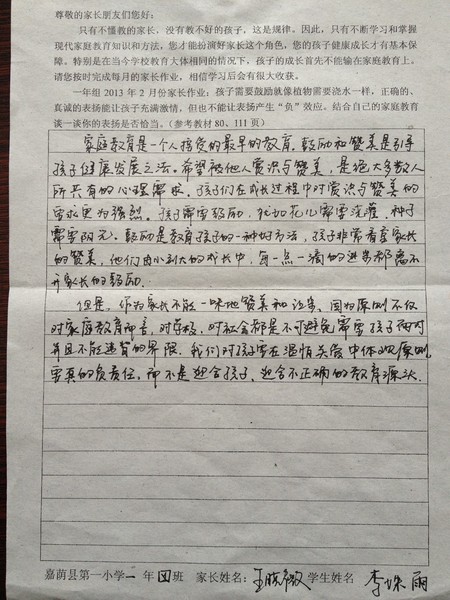 尊敬的家长朋友们您好:
只有不懂教的家长,没有教不好的孩子,这是规律。因此,只有不断学习和掌握
现代家庭教育知识和方法,您才能扮演好家长这个角色,您的孩子健康成长才有基本保
障。特别是在当今学校教育大体相同的情况下,孩子的成长首先不能输在家庭教育上。
请您按时完成每月的家长作业,相信学习后会有很大收获。
一年组 2013 年 2 月份家长作业:孩子需要鼓励就像植物需要浇水一样,正确的、
真诚的表扬能让孩子充满激情,但也不能让表扬产生“负”效应。结合自己的家庭教育
谈一谈你的表扬是否恰当。(参考教材 80、111 页)
家庭教育是一个人接受的最早的教育,鼓励和赞美是引导
孩子健康发展之法。希望被他人赏识与赞美,是绝大多数人
所共有的心理需求。孩子们在成长过程中对赏识与赞美的
需求更为强烈。孩子需要鼓励,犹如花儿需要浇灌,种子
需要阳光。鼓励是教育孩子的一种好方法,孩子非常看重家长
的赞美,他们由小到大的成长中,每一点一滴的进步都离不
开家长的鼓励。
但是,作为家长不能一味地赞美和,因为原则不仅
对家庭教育而言,对学校,对社会都是不可避免需要孩子面对
并且不能违背的界限。我们对孩子要在温情关爱中体现原则,
要真的负责任,而不是迎合孩子、迎合不正确的教育源头。
嘉荫县第一小学一 年 四 班 家长姓名: 王 学生姓名 李姝雨